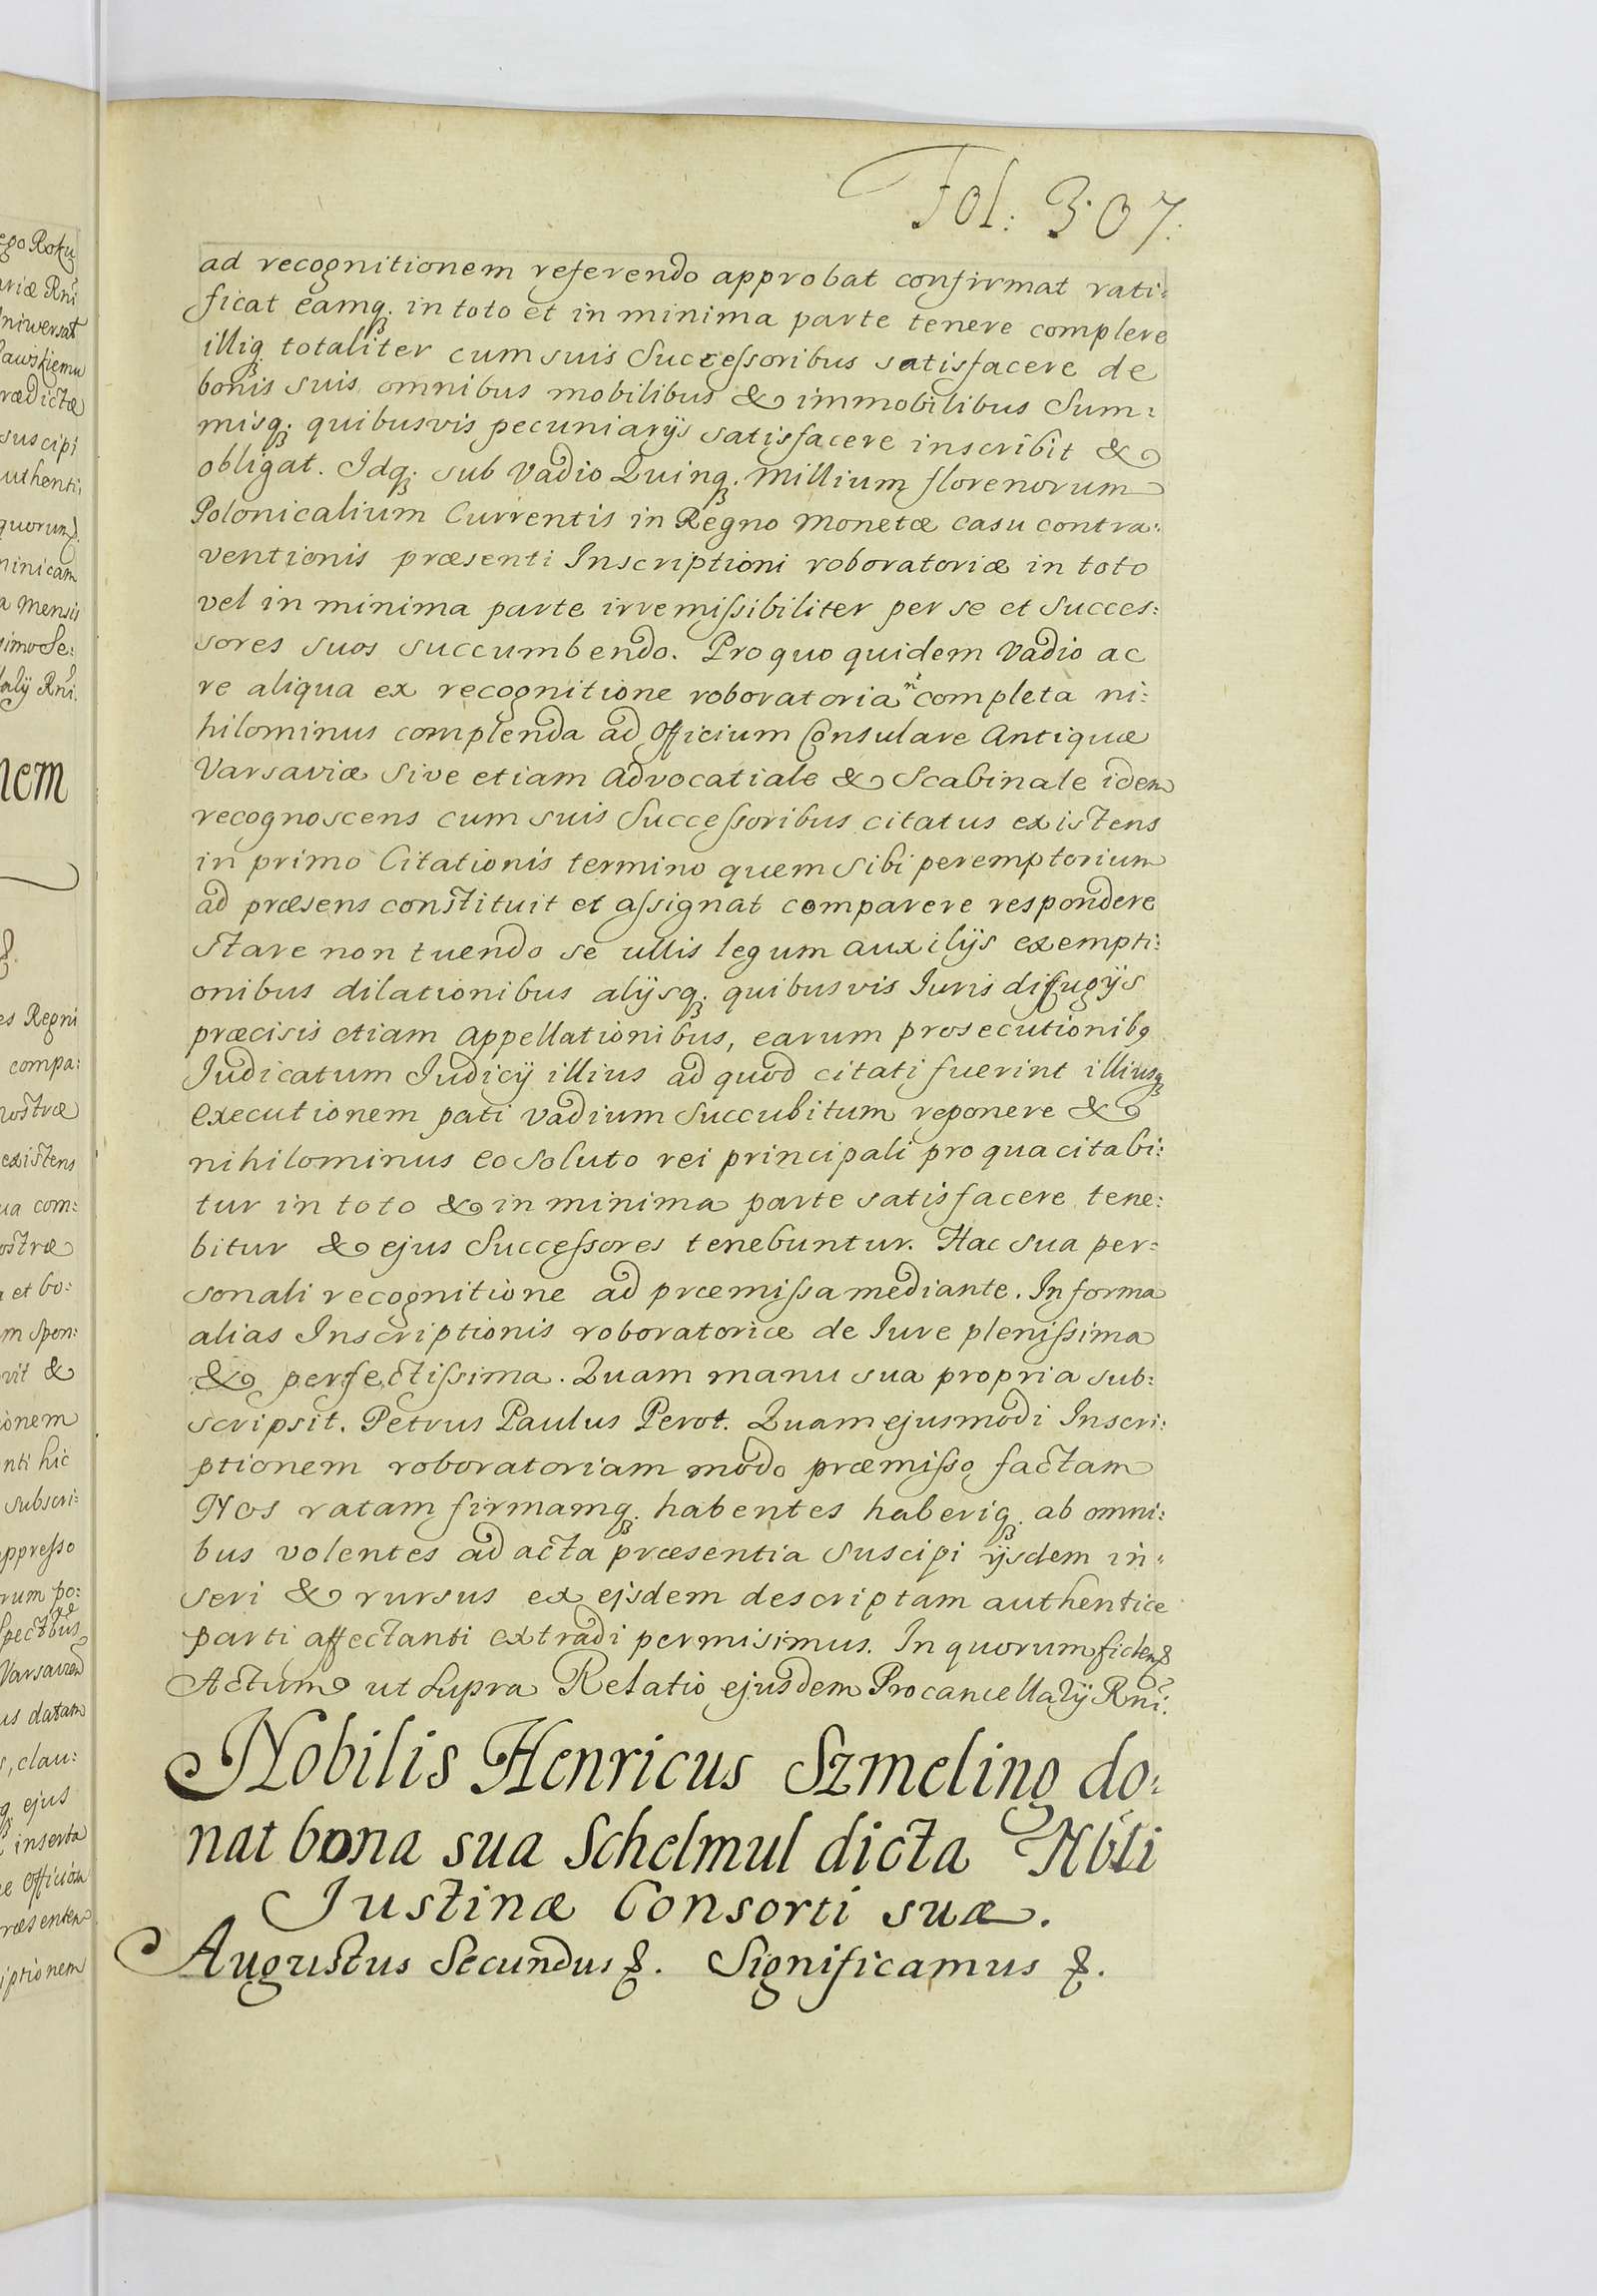 Fol: 307.
ad recognitionem referendo approbat confirmat rati:
ficat eamq; in toto et in minima parte tenere complere
illiq; totaliter cum suis Successoribus satisfacere de
bonis suis omnibus mobilibus & immobilibus Sum:
misq; quibusvis pecuniarijs satisfacere inscribit &
obligat. Idq; sub vadio Quinq; Millium florenorum
Polonicalium Currentis in Regno Monetæ casu contra:
ventionis præsenti Inscriptioni roboratoriæ in toto
vel in minima parte irremissibiliter per se et succes:
sores suos succumbendo. Pro quo quidem vadio ac
re aliqua ex recognitione roboratoria ñ completa ni:
hilominus complenda ad Officium Consulare Antiquæ
Varsaviæ sive etiam Advocatiale & Scabinale idem
recognoscens cum suis Successoribus citatus existens
in primo Citationis termino quem sibi peremptorium
ad præsens constituit et assignat comparere respondere
stare non tuendo se ullis legum auxilijs exempti:
onibus dilationibus alijsq; quibusvis Iuris diffugijs
præcisis etiam Appellationibus, earum prosecutionibq
Judicatum Judicij illius ad quod citati fuerint illiusq;
executionem pati vadium succubitum reponere &
nihilominus eo soluto rei principali pro qua citabi:
tur in toto & in minima parte satisfacere tene:
bitur & ejus Successores tenebuntur. Hac sua per:
sonali recognitione ad præmissa mediante. In forma
alias Inscriptionis roboratoriæ de Iure plenissima
& perfectissima. Quam manu sua propria sub:
scripsit. Petrus Paulus Perot. Quam ejusmodi Inscri:
ptionem roboratoriam modo præmisso factam
Nos ratam firmamq; habentes haberiq; ab omni:
bus volentes ad acta præsentia suscipi ijsdem in:
seri & rursus ex ejsdem descriptam authentice
parti affectanti extradi permisimus. In quorum fidem &
Actum ut supra Relatio ejusdem Procancellarij Rñi.
Nobilis Henricus Szmeling do:
nat bona sua Schelmul dicta Nbli
Justinæ Consorti suæ.
Augustus Secundus &. Significamus &.